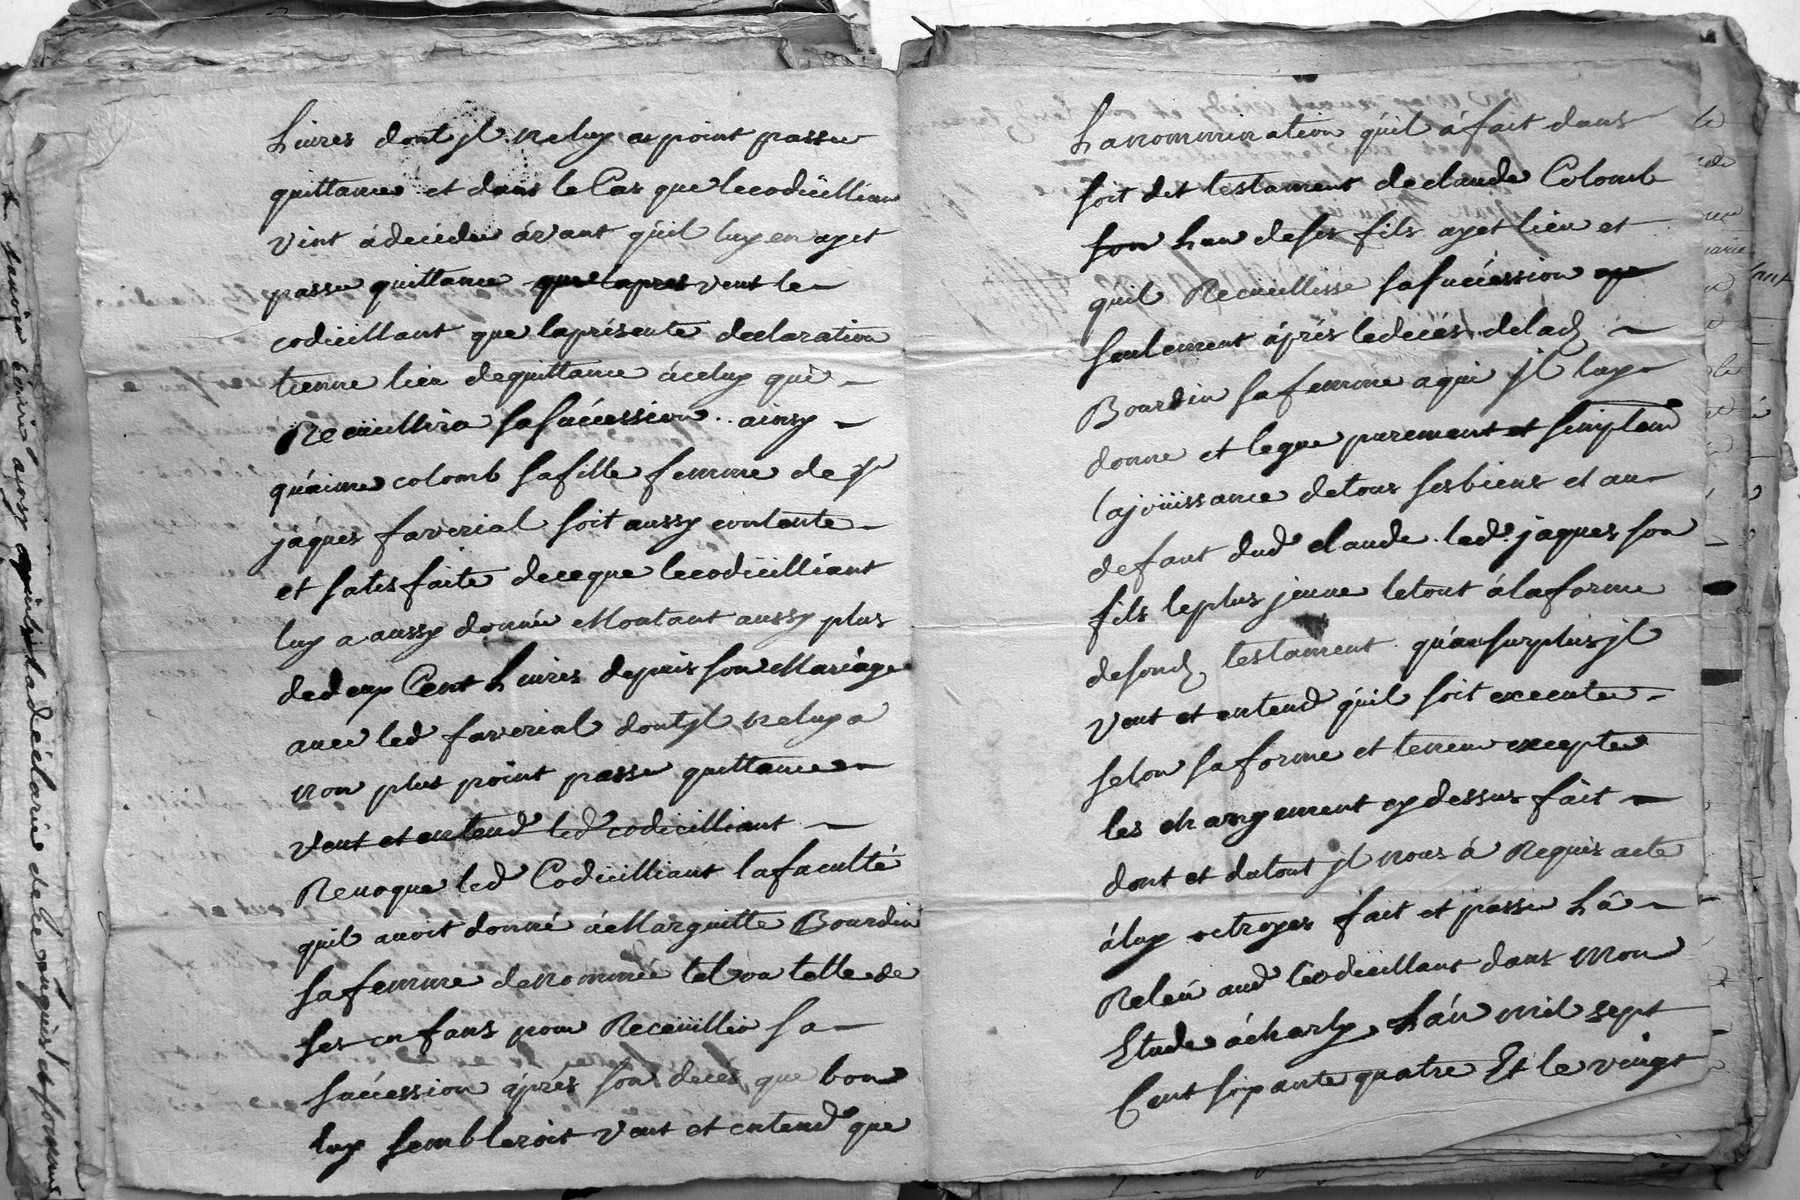 Livres dont jl ne luy a point passé
quittance et dans le Cas que le codicilliant
vint à décéder avant qu'il luy en ayet
passé quittance que lapres veut le
codicillant que la présente declaration
tienne lieu de quittance à celuy qui
Recüeillira sa succession. ainsy
qu'aime colomb sa fille femme de Sr
jâques faverial soit aussy contente
et satisfaite de ce que le codicilliant
luy a aussy donné Montant aussy plus
de deux Cent Livres depuis son Mariage
avec led faverial dont jl ne luy a
non plus point passé quittance
veut et entend led codicilliant
Revoque led Codicilliant la faculté
quil avoit donné à Marguitte Bourdin
sa femme de nommée tel ou telle de
ses enfans pour Recüeillir sa
succession après son deces que bon
luy sembleroit veut et entend que
La nommination qu'il à fait dans
soit dit testament de claude Colomb
son Lun de ses fils ayet lieu et
qu'il Recueillisse sa succession
seulement après le décés de lad
Bourdin sa femme a qui jl luy
donne et legue purement et simplemt
la joüissance de tous ses biens et au
defaut dud claude led. jaques son
fils le plus jeune le tout à la forme
de sond testament qu'au surplus jl
veut et entend qu'il soit executé
selon sa forme et teneur excepté
les changement cy dessus fait
dont et du tout jl nous à Requis acte
à luy octroyés fait et passé Lâ
Releu aud codicillant dans mon
Etude à charly L'an mil sept
Cent soixante quatre Et le vingt